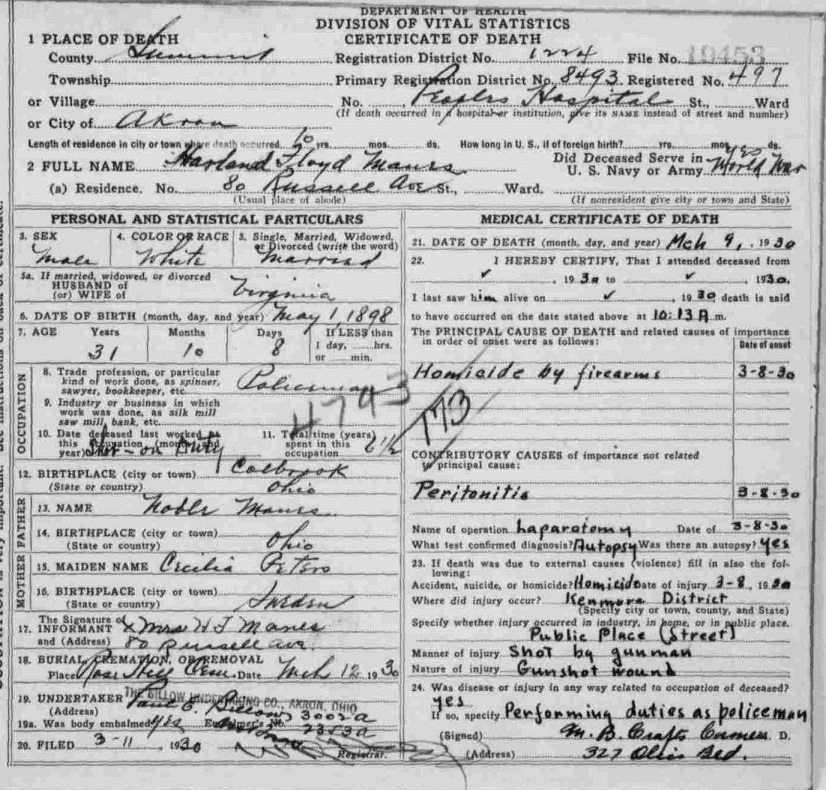 DEPARTMENT OF HEALTH
DIVISION OF VITAL STATISTICS
CERTIFICATE OF DEATH
1 PLACE OF DEATH
County Summit Registration District No. 1224 File No. 19453
Township Primary Registration District No. 8493 Registered No. 497
or Village No. Peoples Hospital St., Ward
or City of Akron (If death occurred in a hospital or institution, give its NAME instead of street and number)
Length of residence in city or town where death occurred 10 yrs. mos. ds. How long in U. S., if of foreign birth? yrs. mos. ds.
2 FULL NAME Harland Floyd Manes Did Deceased Serve in U. S. Navy or Army yes World War
(a) Residence. No. 80 Russell Ave St., Ward.
(Usual place of abode) (If nonresident give city or town and State)
PERSONAL AND STATISTICAL PARTICULARS
3. SEX 4. COLOR OR RACE 5. Single, Married, Widowed, or Divorced (write the word)
Male White Married
5a. If married, widowed, or divorced
HUSBAND of
(or) WIFE of Virginia
6. DATE OF BIRTH (month, day, and year) May 1, 1898
7. AGE Years Months Days If LESS than
1 day, hrs.
31 10 8 or min.
OCCUPATION
8. Trade profession, or particular
kind of work done, as spinner,
sawyer, bookkeeper, etc. Policeman
9. Industry or business in which
work was done, as silk mill
saw mill, bank, etc.
4743
10. Date deceased last worked at this occupation (month and year) Shot - on Duty 11. Total time (years) spent in this occupation 6 1/2
12. BIRTHPLACE (city or town) Colbrook
(State or country) Ohio
FATHER
13. NAME Noble Manes
14. BIRTHPLACE (city or town)
(State or country) Ohio
MOTHER
15. MAIDEN NAME Cecilia Peters
16. BIRTHPLACE (city or town)
(State or country) Sweden
17. The Signature of
INFORMANT x Mrs H F Manes
and (Address) 80 Russell Ave.
18. BURIAL, CREMATION, OR REMOVAL
Place Rose Hill Cem. Date Mch 12, 1930
19. UNDERTAKER THE BILLOW UNDERTAKING CO., AKRON, OHIO
Paul G. Billow
(Address) 3002a
19a. Was body embalmed yes Embalmer's No. 2353a
20. FILED 3-11, 1930
Registrar.
MEDICAL CERTIFICATE OF DEATH
21. DATE OF DEATH (month, day, and year) Mch 9, 1930
22. I HEREBY CERTIFY, That I attended deceased from
✓, 1930 to ✓, 1930.
I last saw him alive on ✓, 1930 death is said
to have occurred on the date stated above at 10:13 A m.
The PRINCIPAL CAUSE OF DEATH and related causes of importance
in order of onset were as follows: Date of onset
Homicide by firearms 3-8-30
173
CONTRIBUTORY CAUSES of importance not related
to principal cause:
Peritonitis 3-8-30
Name of operation Laparotomy Date of 3-8-30
What test confirmed diagnosis? Autopsy Was there an autopsy? yes
23. If death was due to external causes (violence) fill in also the following:
Accident, suicide, or homicide? Homicide Date of injury 3-8, 1930
Where did injury occur? Kenmore District
(Specify city or town, county, and State)
Specify whether injury occurred in industry, in home, or in public place.
Public Place (Street)
Manner of injury Shot by gunman
Nature of injury Gunshot wound
24. Was disease or injury in any way related to occupation of deceased?
yes
If so, specify Performing duties as policeman
(Signed) M. B. Crafts Coroner M. D.
(Address) 327 Ohio Bld.